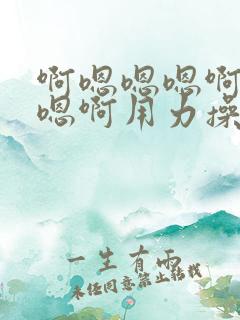 啊嗯嗯嗯啊
嗯啊用力操
一生有雨
未经同意禁止转载